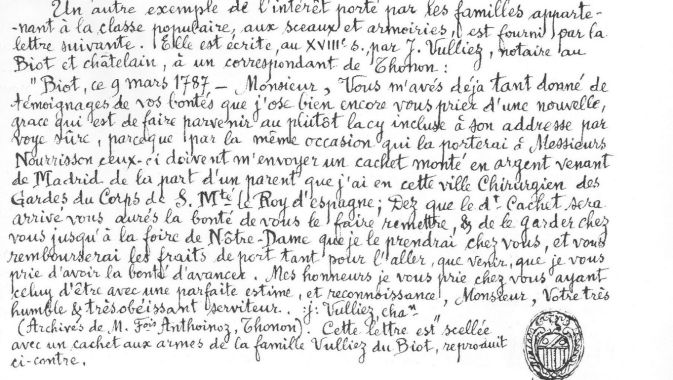 Un autre exemple de l'intérêt porté par les familles apparte-
-nant à la classe populaire, aux sceaux et armoiries, est fourni par la
lettre suivante. Elle est écrite, au XVIIIe s., par J. Vulliez, notaire au
Biot et châtelain, à un correspondant de Thonon :
"Biot, ce 9 mars 1787 — Monsieur, Vous m'avés déja tant donné de
témoignages de vos bontés que j'ose bien encore vous prier d'une nouvelle,
grace qui est de faire parvenir au plûtôt lacy incluse à son addresse par
voye sûre, parceque par la même occasion qui la porterai à Messieurs
Nourrisson ceux-ci doivent m'envoyer un cachet monté en argent venant
de Madrid de la part d'un parent que j'ai en cette ville Chirurgien des
Gardes du Corps de S. Mté le Roy d'espagne ; Dez que le dt. Cachet sera
arrivé vous aurés la bonté de vous le faire remettre, & de le garder chez
vous jusqu'à la foire de Nôtre-Dame que je le prendrai chez vous, et vous
rembourserai les fraits de port tant pour l'aller, que venir, que je vous
prie d'avoir la bonté d'avancer. Mes honneurs je vous prie chez vous ayant
celuy d'être avec une parfaite estime, et reconnoissance, Monsieur, Vôtre très
humble & très obéissant serviteur. :j: Vulliez, chan
(Archives de M. Fois Anthoinoz, Thonon). Cette lettre est scellée
avec un cachet aux armes de la famille Vulliez du Biot, reproduit
ci-contre.